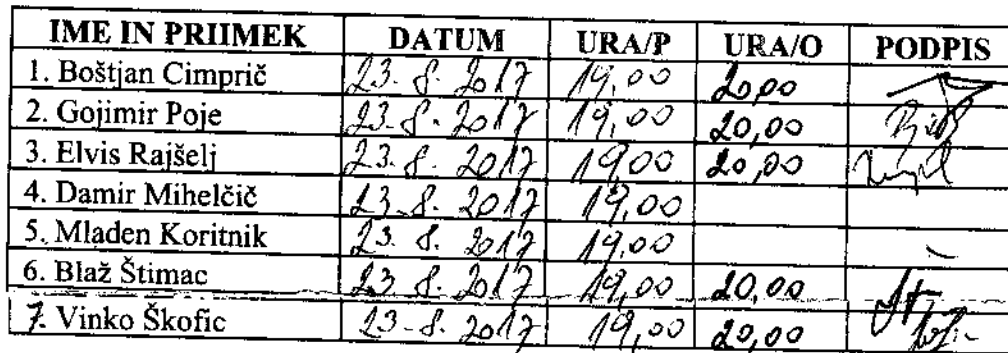 IME IN PRIIMEK DATUM URA/P URA/O PODPIS
1. Boštjan Cimprič 23. 8. 2017 19,00 20,00
2. Gojimir Poje 23. 8. 2017 19,00 20,00
3. Elvis Rajšelj 23. 8. 2017 19,00 20,00
4. Damir Mihelčič 23. 8. 2017 19,00
5. Mladen Koritnik 23. 8. 2017 19,00
6. Blaž Štimac 23. 8. 2017 19,00 20,00
7. Vinko Škofic 23. 8. 2017 19,00 20,00